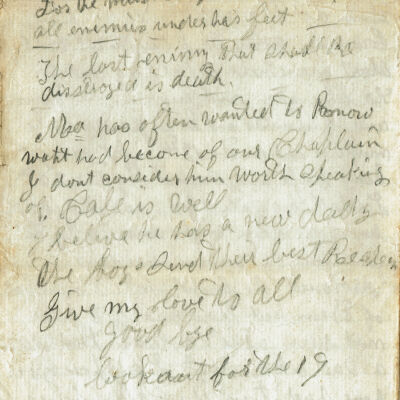 For he must
all enimies under his feet
The last enimy that shall be
distroyed is death.
Maa has often wanted to know
waht had become of our Chaplain
I dont consider him worth speaking
of. Cafe is well
I belive he has a new daddy
the boys send their best
Give my love to all
good bye
look out for the 19